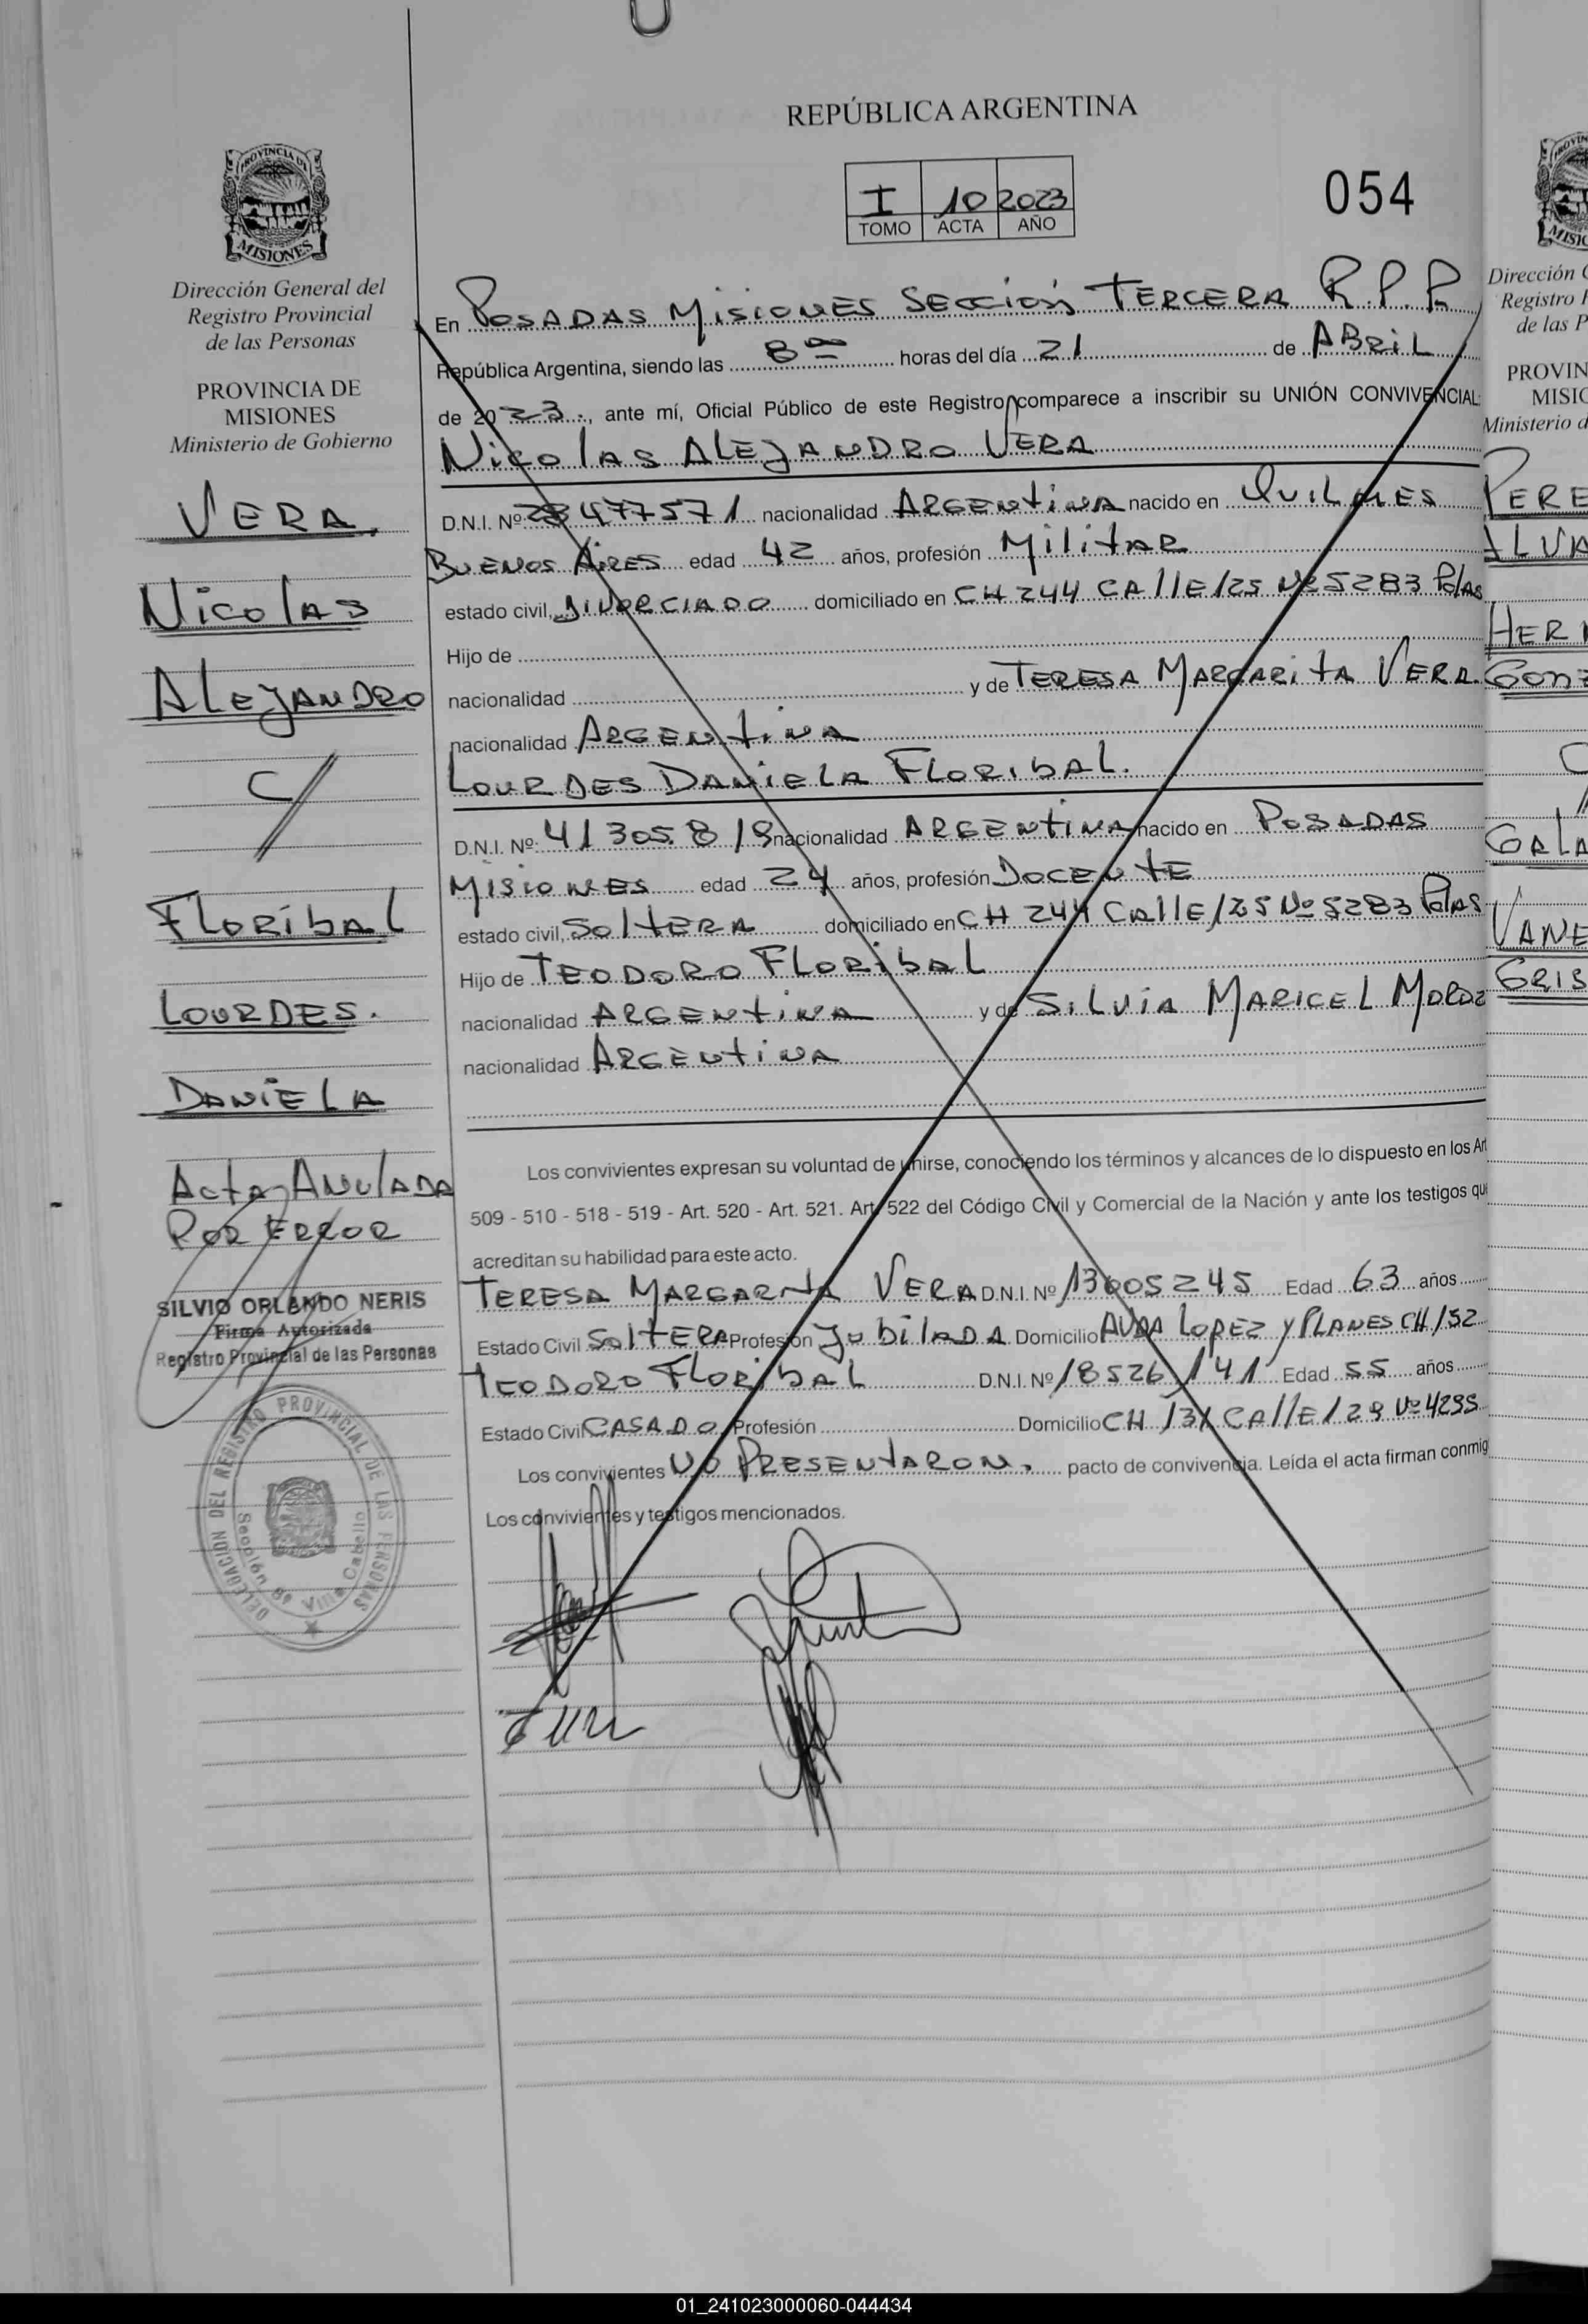 REPÚBLICA ARGENTINA
I 10 2023
TOMO ACTA AÑO
054
PROVINCIA DE
MISIONES
Dirección General del
Registro Provincial
de las Personas
PROVINCIA DE
MISIONES
Ministerio de Gobierno
VERA,
Nicolas
Alejandro
c/
Floribal
LOURDES.
DANIELA
Acta Anulada
Por Error
SILVIO ORLANDO NERIS
Firma Autorizada
Registro Provincial de las Personas
DELEGACION DEL REGISTRO PROVINCIAL DE LAS PERSONAS
Villa Cabello
En POSADAS MISIONES SECCIÓN TERCERA R.P.P.
República Argentina, siendo las 8 horas del día 21 de ABRIL
de 2023, ante mí, Oficial Público de este Registro comparece a inscribir su UNIÓN CONVIVENCIAL
Nicolas ALEJANDRO VERA
D.N.I. Nº 477571 nacionalidad ARGENTINA nacido en QUILMES
BUENOS AIRES edad 42 años, profesión MILITAR
estado civil, DIVORCIADO domiciliado en CH 244 CALLE 125 Nº 5283 Pdas
Hijo de
nacionalidad y de TERESA MARGARITA VERA.
nacionalidad ARGENTINA
LOURDES DANIELA FLORIBAL.
D.N.I. Nº: 41305.819 nacionalidad ARGENTINA nacido en POSADAS
MISIONES edad 24 años, profesión DOCENTE
estado civil, SOLTERA domiciliado en CH 244 CALLE 125 Nº 5283 Pdas
Hijo de TEODORO FLORIBAL
nacionalidad ARGENTINA y de SILVIA MARICEL
nacionalidad ARGENTINA
Los convivientes expresan su voluntad de unirse, conociendo los términos y alcances de lo dispuesto en los Art
509 - 510 - 518 - 519 - Art. 520 - Art. 521. Art. 522 del Código Civil y Comercial de la Nación y ante los testigos que
acreditan su habilidad para este acto.
TERESA MARGARITA VERA D.N.I. Nº 13005245 Edad 63 años
Estado Civil SOLTERA Profesión JUBILADA Domicilio AVDA LOPEZ Y PLANES CH 152
TEODORO FLORIBAL D.N.I. Nº 18526141 Edad 55 años
Estado Civil CASADO Profesión Domicilio CH CALLE 129 Nº 4295
Los convivientes NO PRESENTARON, pacto de convivencia. Leída el acta firman conmig
Los convivientes y testigos mencionados.
Dirección
Registro
de las P
PROVIN
MISIO
Ministerio d
PERE
ALVA
HER
GONZ
GALA
VANE
GRIS
01_241023000060-044434